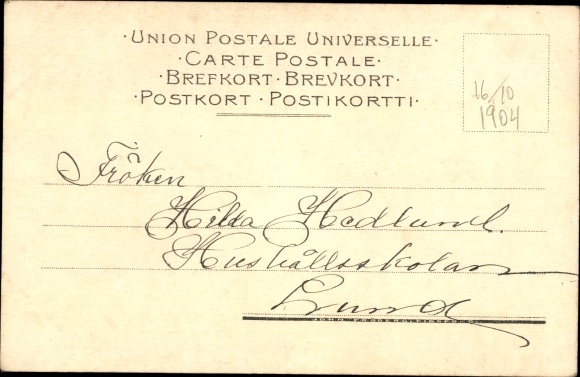 ·UNION POSTALE UNIVERSELLE·
·CARTE POSTALE·
·BREFKORT·BREVKORT·
·POSTKORT·POSTIKORTTI·
16/10
1904
Fröken
Hilda Hedlund.
Hushållsskolan
Lund